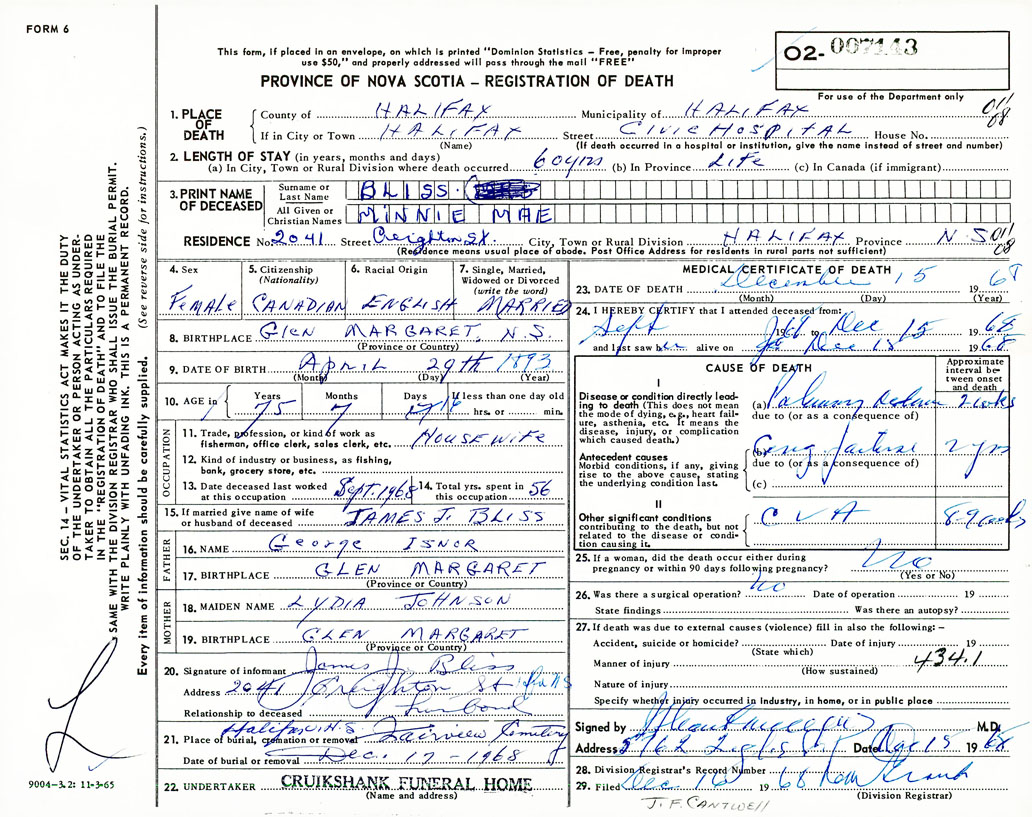 FORM 6
This form, if placed in an envelope, on which is printed "Dominion Statistics – Free, penalty for improper
use $50," and properly addressed will pass through the mail "FREE"
PROVINCE OF NOVA SCOTIA – REGISTRATION OF DEATH
02-007143
For use of the Department only
1. PLACE OF DEATH
County of HALIFAX Municipality of HALIFAX 011 08
If in City or Town HALIFAX Street CIVIC HOSPITAL House No.
(Name) (If death occurred in a hospital or institution, give the name instead of street and number)
2. LENGTH OF STAY (in years, months and days)
(a) In City, Town or Rural Division where death occurred 60 yrs (b) In Province LIFE (c) In Canada (if immigrant)
3. PRINT NAME OF DECEASED
Surname or Last Name BLISS
All Given or Christian Names MINNIE MAE
RESIDENCE No. 2041 Street Creighton St. City, Town or Rural Division HALIFAX Province N.S. 011 08
(Residence means usual place of abode. Post Office Address for residents in rural parts not sufficient)
4. Sex FEMALE
5. Citizenship (Nationality) CANADIAN
6. Racial Origin ENGLISH
7. Single, Married, Widowed or Divorced (write the word) MARRIED
8. BIRTHPLACE GLEN MARGARET, N.S.
(Province or Country)
9. DATE OF BIRTH APRIL 29th 1893
(Month) (Day) (Year)
10. AGE in Years 75 Months 7 Days 16 If less than one day old hrs. or min.
OCCUPATION
11. Trade, profession, or kind of work as fisherman, office clerk, sales clerk, etc. HOUSEWIFE
12. Kind of industry or business, as fishing, bank, grocery store, etc.
13. Date deceased last worked at this occupation Sept. 1968
14. Total yrs. spent in this occupation 56
15. If married give name of wife or husband of deceased JAMES J. BLISS
FATHER
16. NAME George ISNOR
17. BIRTHPLACE GLEN MARGARET
(Province or Country)
MOTHER
18. MAIDEN NAME LYDIA JOHNSON
19. BIRTHPLACE GLEN MARGARET
(Province or Country)
20. Signature of informant James J. Bliss
Address 2041 Creighton St
Relationship to deceased husband
21. Place of burial, cremation or removal Halifax N.S. Fairview Cemetery
Date of burial or removal Dec. 17 - 1968
22. UNDERTAKER CRUIKSHANK FUNERAL HOME
(Name and address)
MEDICAL CERTIFICATE OF DEATH
23. DATE OF DEATH December 15 1968
(Month) (Day) (Year)
24. I HEREBY CERTIFY that I attended deceased from:
Sept 1968 to Dec 15 1968
and last saw her alive on Dec 15 1968
CAUSE OF DEATH
Approximate interval between onset and death
I
Disease or condition directly leading to death (This does not mean the mode of dying, e.g., heart failure, asthenia, etc. It means the disease, injury, or complication which caused death.)
(a) Pulmonary Edema 2 weeks
due to (or as a consequence of)
Antecedent causes
Morbid conditions, if any, giving rise to the above cause, stating the underlying condition last.
(b) Cong failure 2 yrs
due to (or as a consequence of)
(c)
II
Other significant conditions contributing to the death, but not related to the disease or condition causing it.
CVA 8-9 weeks
25. If a woman, did the death occur either during pregnancy or within 90 days following pregnancy? No
(Yes or No)
26. Was there a surgical operation? no Date of operation 19
State findings Was there an autopsy?
27. If death was due to external causes (violence) fill in also the following: –
Accident, suicide or homicide? Date of injury 19
(State which)
Manner of injury 434.1
(How sustained)
Nature of injury
Specify whether injury occurred in Industry, in home, or in public place
Signed by M.D.
Address Date Dec 15 1968
28. Division Registrar's Record Number
29. Filed Dec 16 1968
(Division Registrar)
J.F. CANTWELL
SEC. 14 – VITAL STATISTICS ACT MAKES IT THE DUTY
OF THE UNDERTAKER OR PERSON ACTING AS UNDER-
TAKER TO OBTAIN ALL THE PARTICULARS REQUIRED
IN THE "REGISTRATION OF DEATH" AND TO FILE THE
SAME WITH THE DIVISION REGISTRAR WHO SHALL ISSUE THE BURIAL PERMIT.
WRITE PLAINLY WITH UNFADING INK. THIS IS A PERMANENT RECORD.
Every item of information should be carefully supplied. (See reverse side for instructions.)
9004-3.2: 11-3-65